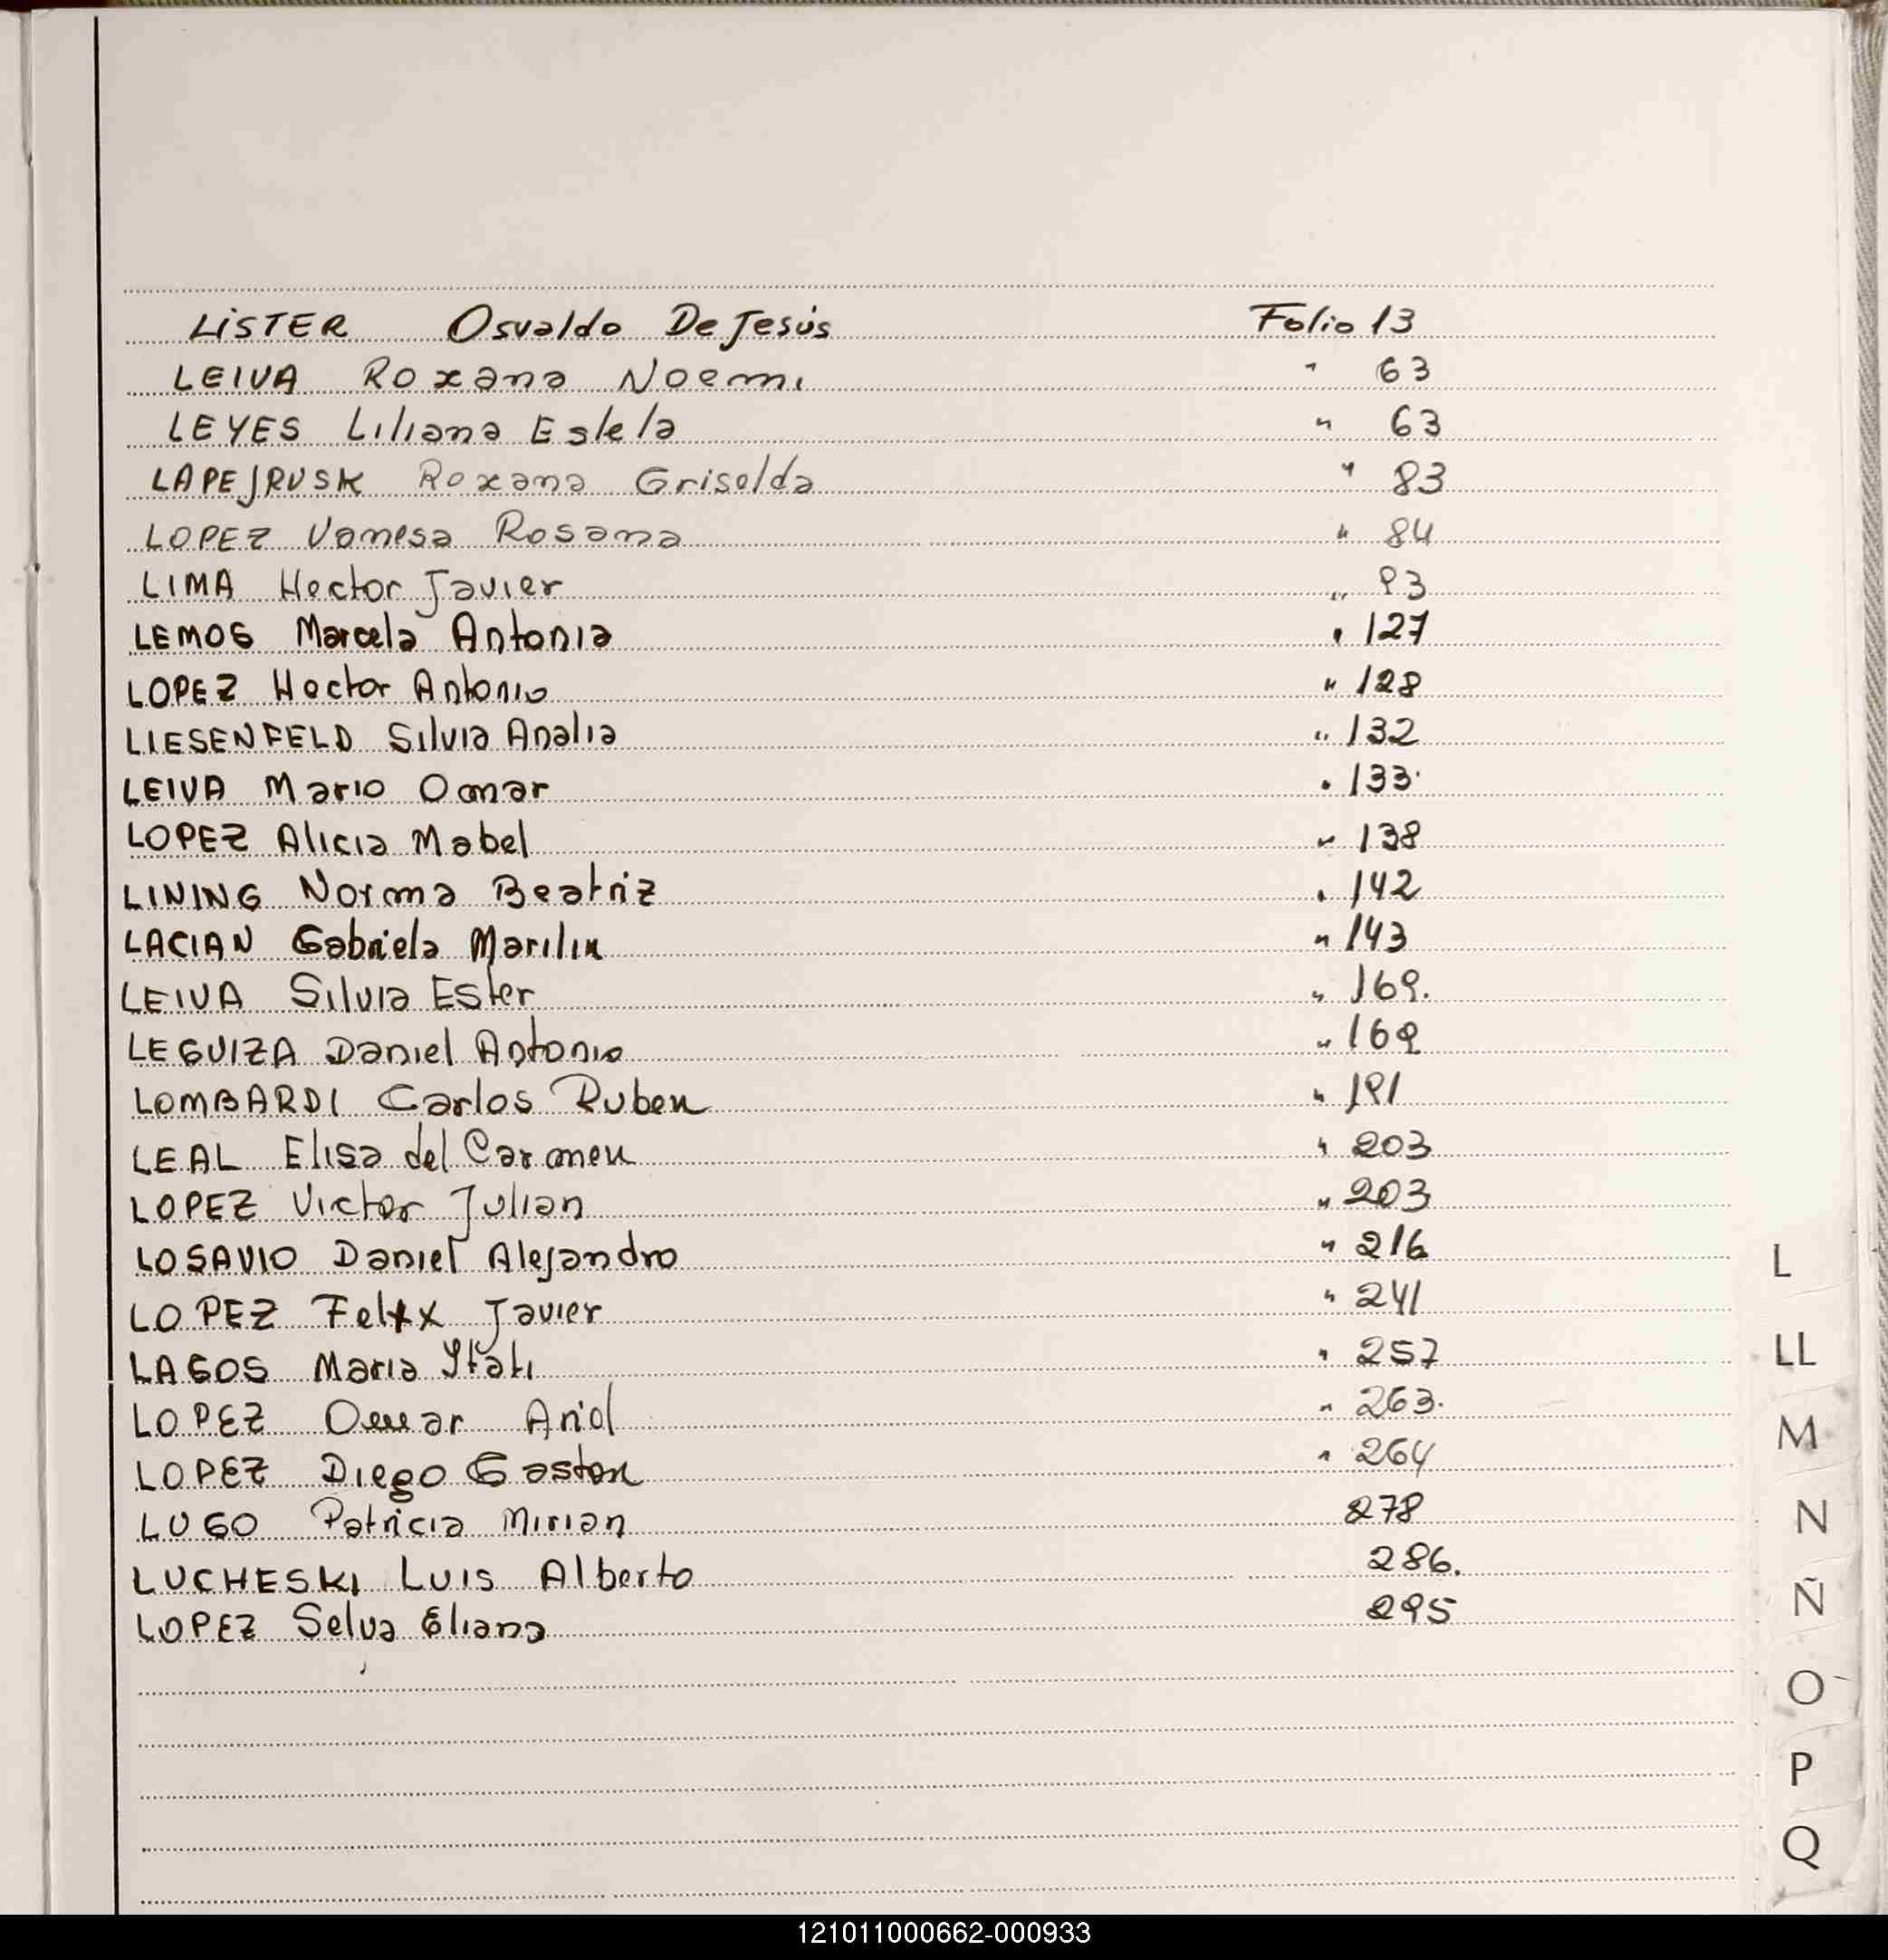 LISTER Osvaldo De Jesús Folio 13
LEIVA Roxana Noemi " 63
LEYES Liliana Estela " 63
LAPEJRUSK Roxana Griselda " 83
LOPEZ Vanesa Rosana " 84
LIMA Hector Javier " 93
LEMOS Marcela Antonia " 127
LOPEZ Hector Antonio " 128
LIESENFELD Silvia Analia " 132
LEIVA Mario Omar " 133.
LOPEZ Alicia Mabel " 138
LINING Norma Beatriz " 142
LACIAN Gabriela Marilin " 143
LEIVA Silvia Ester " 169.
LEGUIZA Daniel Antonio " 169
LOMBARDI Carlos Ruben " 191
LEAL Elisa del Carmen " 203
LOPEZ Victor Julian " 203
LOSAVIO Daniel Alejandro " 216
LOPEZ Felix Javier " 241
LAGOS Maria Itati " 257
LOPEZ Omar Ariel " 263.
LOPEZ Diego Gaston " 264
LUGO Patricia Mirian 278
LUCHESKI Luis Alberto 286.
LOPEZ Selva Eliana 295
L
LL
M
N
Ñ
O
P
Q
121011000662-000933